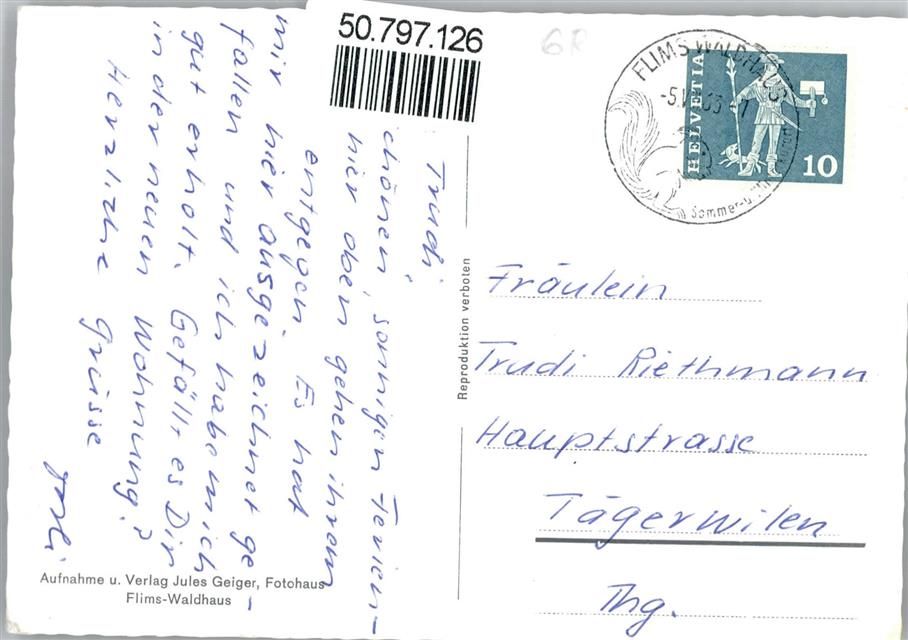 50.797.126
6R
FLIMS WALDHAUS
-5.VII.63-7
Sommer-u.
HELVETIA
10
Trudi
chönen, sonnigen Ferien-
hier oben gehen ihrem
entgegen. Es hat
mir hier ausgezeichnet ge-
fallen und ich habe mich
gut erholt. Gefällt es Dir
in der neuen Wohnung?
Herzliche Grüsse
Reproduktion verboten
Fräulein
Trudi Riethmann
Hauptstrasse
Tägerwilen
Thg.
Aufnahme u. Verlag Jules Geiger, Fotohaus
Flims-Waldhaus